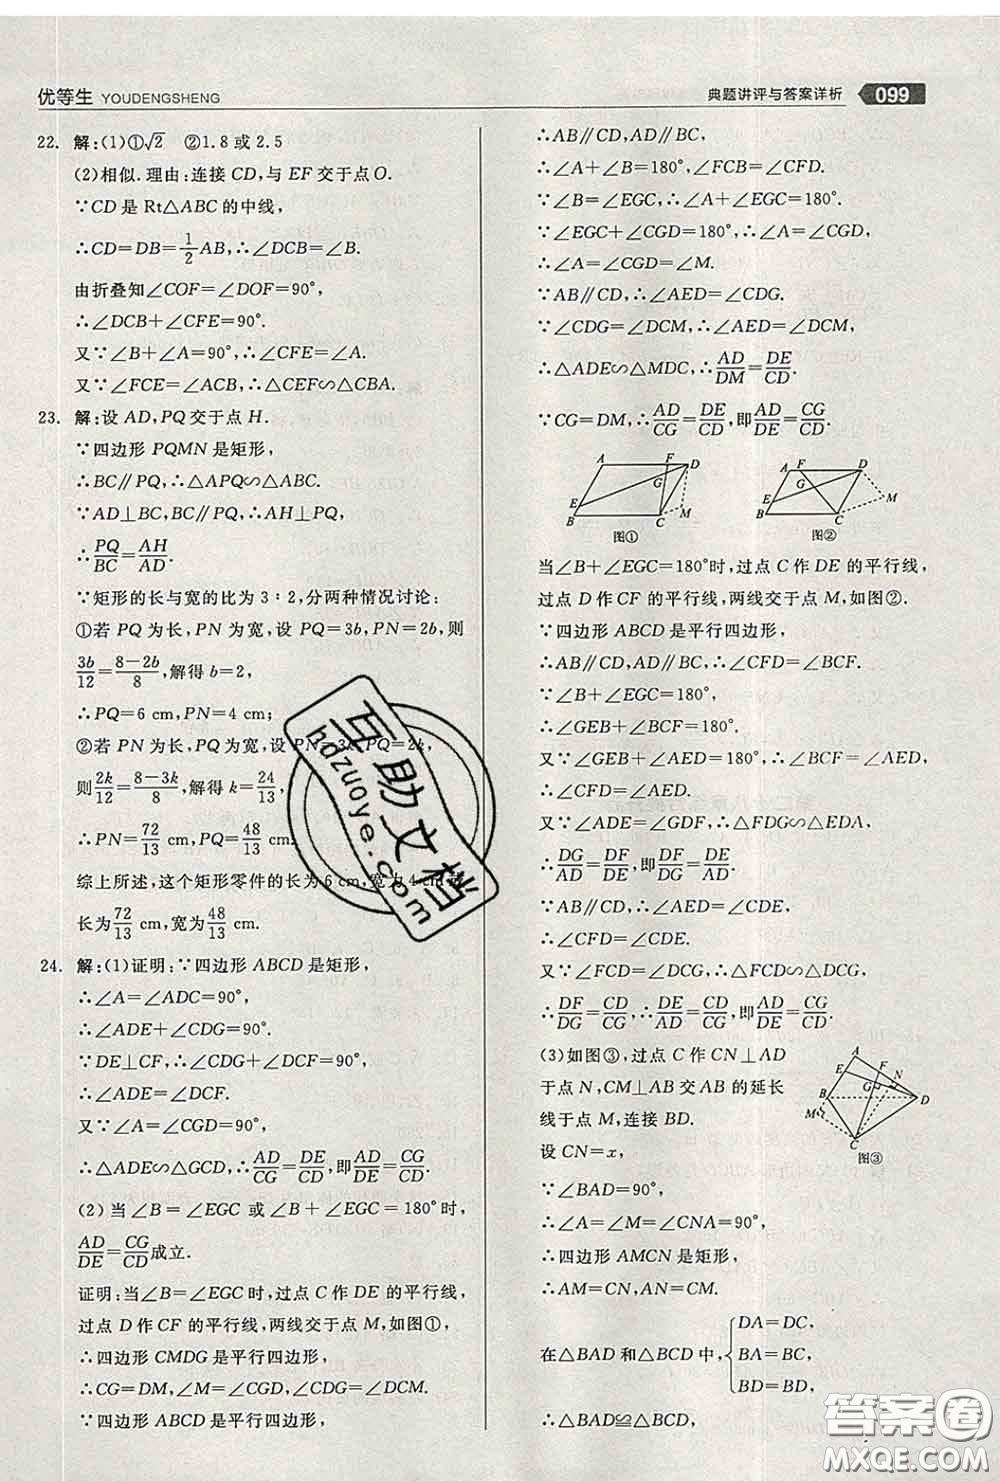 优等生 YOUDENGSHENG
典题讲评与答案详析 099
22. 解:(1)①√2 ②1.8或2.5
(2)相似.理由:连接CD,与EF交于点O.
∵CD是Rt△ABC的中线,
∴CD=DB=1/2AB,∴∠DCB=∠B.
由折叠知∠COF=∠DOF=90°,
∴∠DCB+∠CFE=90°.
又∵∠B+∠A=90°,∴∠CFE=∠A.
又∵∠FCE=∠ACB,∴△CEF∽△CBA.
23. 解:设AD,PQ交于点H.
∵四边形PQMN是矩形,
∴BC∥PQ,∴△APQ∽△ABC.
∵AD⊥BC,BC∥PQ,∴AH⊥PQ,
∴PQ/BC=AH/AD.
∵矩形的长与宽的比为3∶2,分两种情况讨论:
①若PQ为长,PN为宽,设PQ=3b,PN=2b,则
3b/12=(8-2b)/8,解得b=2,
∴PQ=6 cm,PN=4 cm;
②若PN为长,PQ为宽,设PN=3k,PQ=2k,
则2k/12=(8-3k)/8,解得k=24/13,
∴PN=72/13 cm,PQ=48/13 cm.
综上所述,这个矩形零件的长为6 cm,宽为4 cm
长为72/13 cm,宽为48/13 cm.
24. 解:(1)证明:∵四边形ABCD是矩形,
∴∠A=∠ADC=90°,
∴∠ADE+∠CDG=90°.
∵DE⊥CF,∴∠CDG+∠DCF=90°,
∴∠ADE=∠DCF.
又∵∠A=∠CGD=90°,
∴△ADE∽△GCD,∴AD/CG=DE/CD,即AD/DE=CG/CD.
(2)当∠B=∠EGC或∠B+∠EGC=180°时,
AD/DE=CG/CD成立.
证明:当∠B=∠EGC时,过点C作DE的平行线,
过点D作CF的平行线,两线交于点M,如图①,
∴四边形CMDG是平行四边形,
∴CG=DM,∠M=∠CGD,∠CDM=∠DCF.
∵四边形ABCD是平行四边形,
∴AB∥CD,AD∥BC,
∴∠A+∠B=180°,∠FCB=∠CFD.
∵∠B=∠EGC,∴∠A+∠EGC=180°.
∵∠EGC+∠CGD=180°,∴∠A=∠CGD,
∴∠A=∠M.
∵AB∥CD,∴∠AED=∠CDG.
∵∠CDG=∠DCM,∴∠AED=∠DCM,
∴△ADE∽△MDC,∴AD/DM=DE/CD.
∵CG=DM,∴AD/CG=DE/CD,即AD/DE=CG/CD.
A F D G E B C M
图①
A F D G E B C M
图②
当∠B+∠EGC=180°时,过点C作DE的平行线,
过点D作CF的平行线,两线交于点M,如图②.
∵四边形ABCD是平行四边形,
∴AB∥CD,AD∥BC,∴∠CFD=∠BCF.
∵∠B+∠EGC=180°,
∴∠GEB+∠BCF=180°.
又∵∠GEB+∠AED=180°,∴∠BCF=∠AED,
∴∠CFD=∠AED.
又∵∠ADE=∠GDF,∴△FDG∽△EDA,
∴DG/DA=DF/DE,即DF/DG=DE/DA.
∵AB∥CD,∴∠AED=∠CDE,
∴∠CFD=∠CDE.
又∵∠FCD=∠DCG,∴△FCD∽△DCG,
∴DF/DG=CD/CG,∴DE/DA=CD/CG,即AD/DE=CG/CD.
(3)如图③,过点C作CN⊥AD
于点N,CM⊥AB交AB的延长
线于点M,连接BD.
设CN=x,
A F N E G B D M C
图③
∵∠BAD=90°,
∴∠A=∠M=∠CNA=90°,
∴四边形AMCN是矩形,
∴AM=CN,AN=CM.
在△BAD和△BCD中,{DA=DC,
BA=BC,
BD=BD,
∴△BAD≌△BCD,
互助文档
hdzuoye.com
答案圈
MXQE.COM